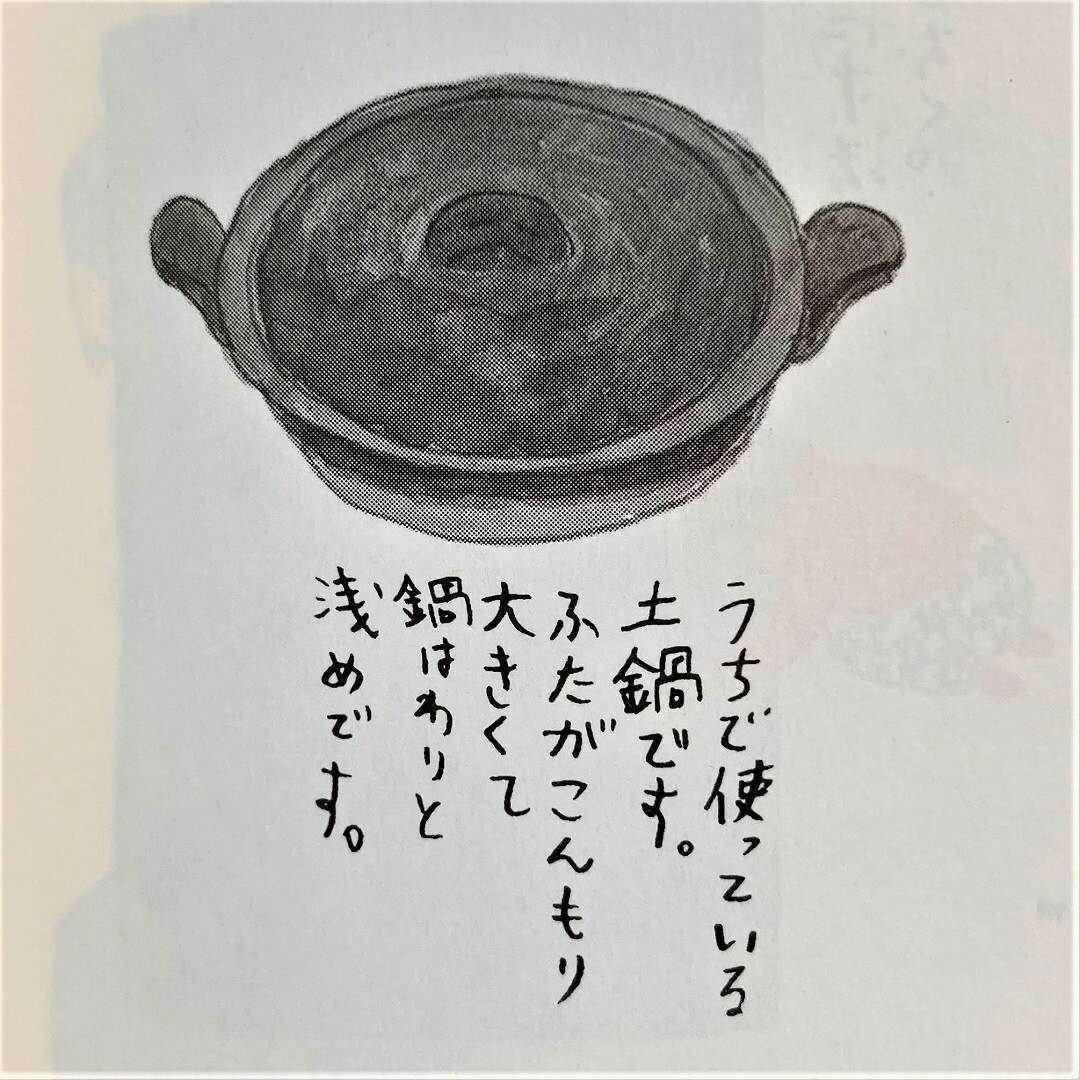 うちで使っている
土鍋です。
ふたがこんもり
大きくて
鍋はわりと
浅めです。